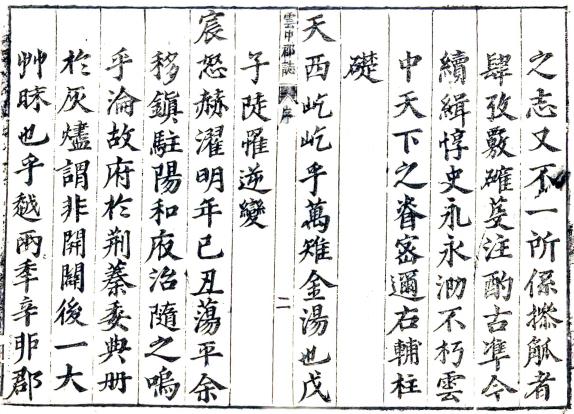 之志又不一所係摻觚者
肆攷覈確蒐注酌古準今
續緝惇史永永泐不朽雲
中天下之脊密邇右輔柱
礎
天西屹屹乎萬雉金湯也戊
雲中郡誌 序 二
子陡罹逆變
宸怒赫濯明年己丑蕩平余
移鎮駐陽和府治隨之嗚
乎淪故府於荆蓁委典册
於灰燼謂非開闢後一大
艸昧也乎越兩季辛卯郡